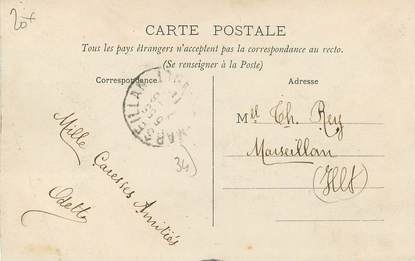 20f
CARTE POSTALE
Tous les pays étrangers n'acceptent pas la correspondance au recto.
(Se renseigner à la Poste)
Correspondance
Adresse
MARSEILLAN
34
Mille
Caresses Amitiés
Odette
Mll Ch. Rey
Marseillan
(Hlt)